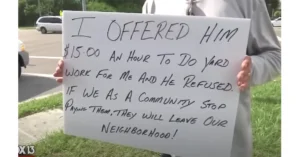 I OFFERED HIM
$15.00 AN HOUR TO DO YARD
WORK FOR ME AND HE REFUSED.
IF WE AS A COMMUNITY STOP
PAYING THEM, THEY WILL LEAVE OUR
NEIGHBORHOOD!
X 13